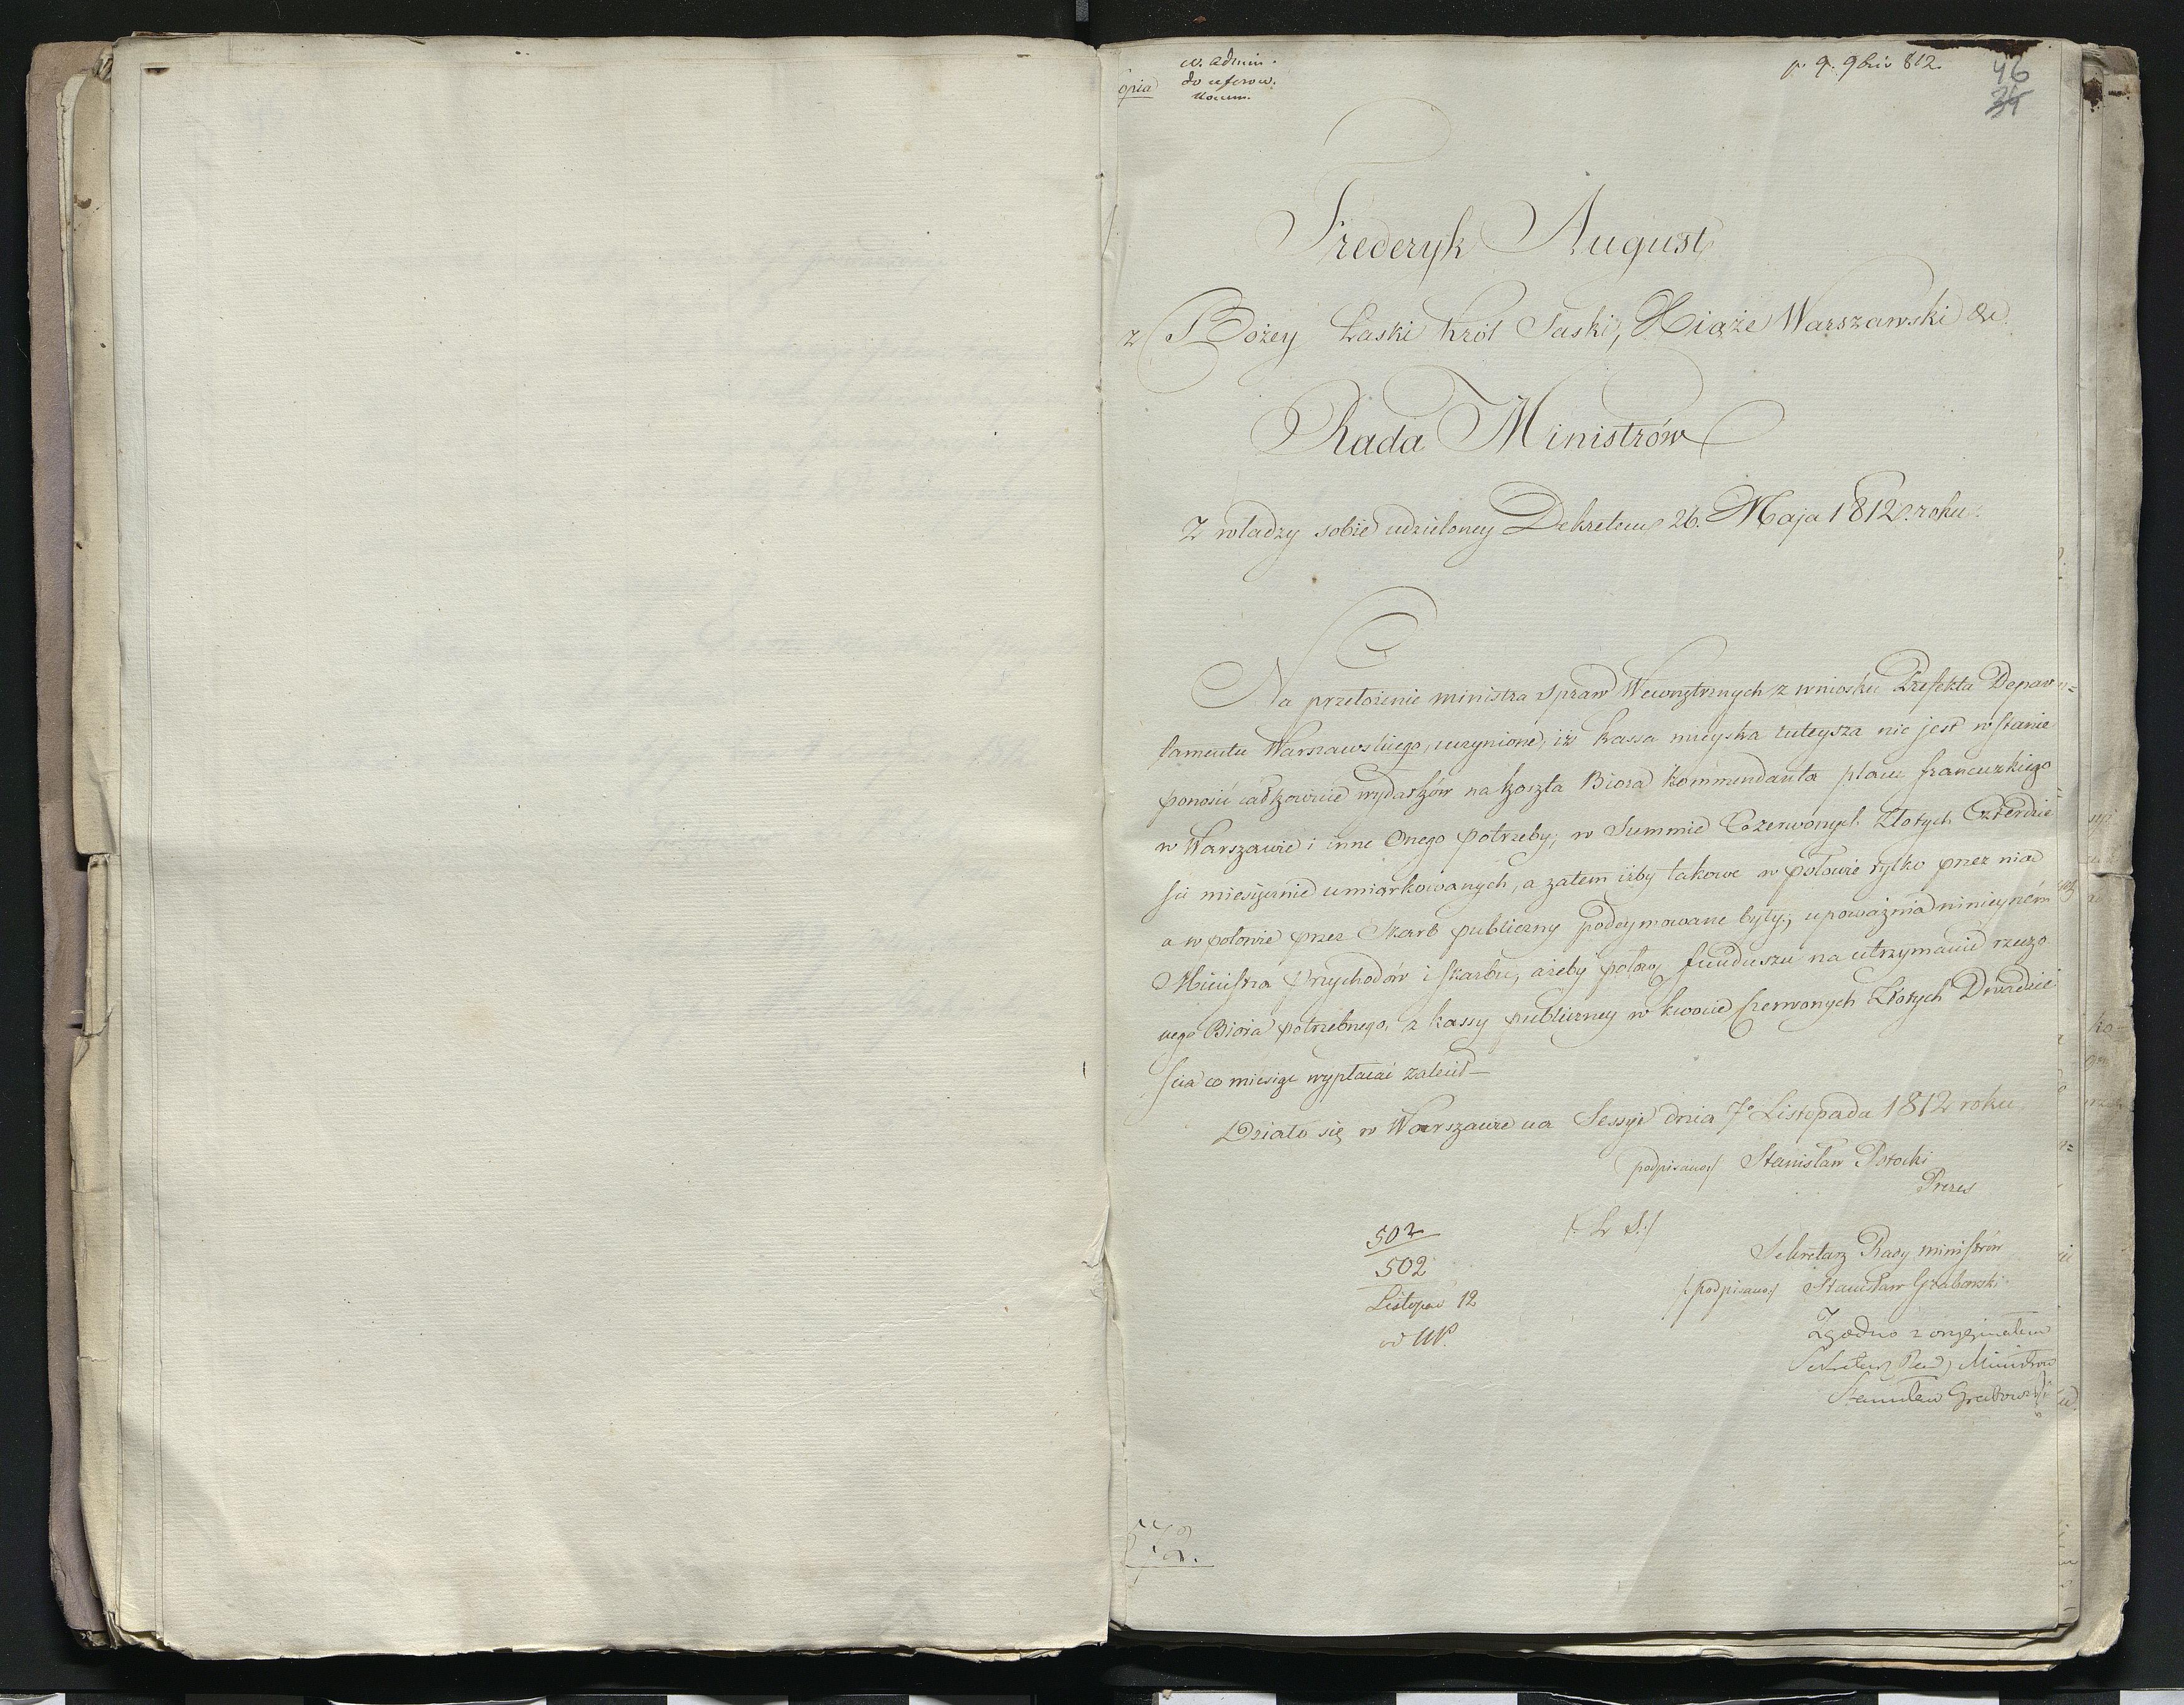 opia
do
p. 9. 9bris 812.
46
34
Frederyk August
z Bożey Łaski Król Saski, Xiąże Warszawski &c.
Rada Ministrów
Z władzy sobie udzieloney Dekretem 26. Maja 1812. roku.
Na przełożenie ministra Spraw Wewnętrznych z wniosku Prefekta Depar
tamentu Warszawskiego, uczynione, iż kassa mieyska tuteysza nie jest w stanie
ponosić całkowicie wydatków na koszta Biora kommendanta placu francuzkiego
w Warszawie i inne Onego potrzeby, w Summie Czerwonych Złotych Czterdzie
ści miesięcznie umiarkowanych, a zatem iżby takowe w połowie tylko przez nią
a w połowie przez Skarb publiczny podeymowane były; upoważnia ninieyszém
Ministra Przychodów i Skarbu, ażeby połowę funduszu na utrzymanie rzeczo
nego Biora potrzebnego, z kassy publiczney w kwocie Czerwonych Złotych Dwadzie
ścia co miesiąc wypłacać zalecił—
Działo się w Warszawie na Sessyi dnia 7o Listopada 1812 roku
podpisano/ Stanisław Potocki
Prezes
/: L. S.:/
502
502
Listopad 12
Sekretarz Rady ministrów
/:podpisano:/ Stanisław Grabowski
Zgodno z oryginałem
Sekretarz Rady Ministrów
Stanisław Grabowski